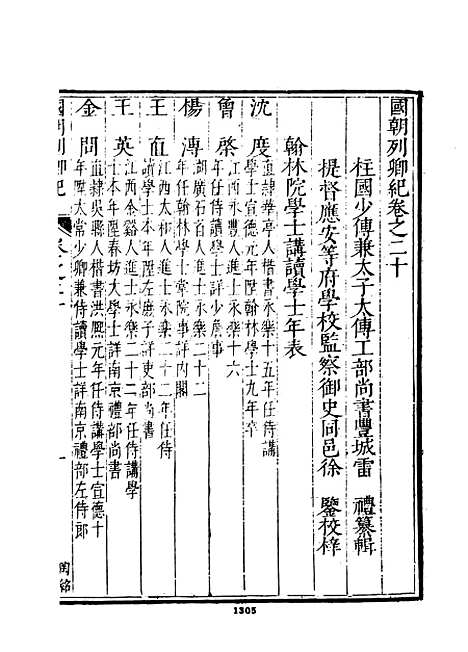 國朝列卿紀卷之二十
柱國少傅兼太子太傅工部尚書豐城雷　禮纂輯
提督應安等府學校監察御史同邑徐　鑒校梓
翰林院學士講讀學士年表
沈度　直隷華亭人楷書永樂十五年任侍講
學士宣德元年陞翰林學士九年卒
曾棨　江西永豐人進士永樂十六
年任侍讀學士詳少詹事
楊溥　湖廣石首人進士永樂二十二
年任翰林學士掌院事詳內閣
王直　江西太和人進士永樂二十二年任侍
讀學士本年陞左庶子詳吏部尚書
王英　江西金谿人進士永樂二十二年任侍講學
士本年陞春坊大學士詳南京禮部尚書
金問　直隷吳縣人楷書洪熙元年任侍講學士宣德十
年陞太常少卿兼侍讀學士詳南京禮部左侍郎
國朝列卿紀　卷之二十　一
1305